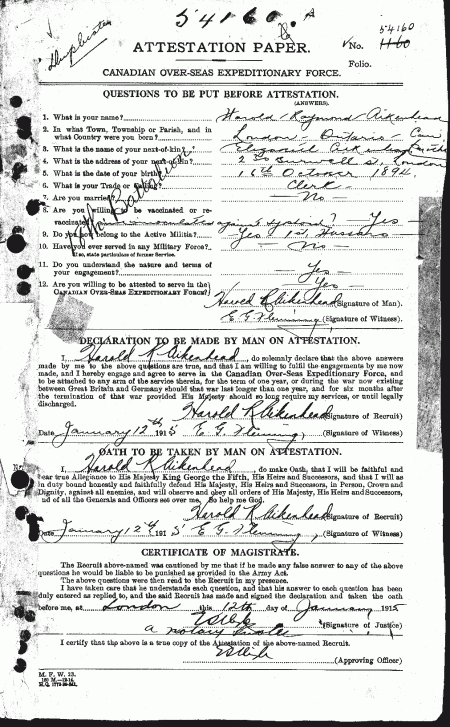 54160 A
Duplicate
54160
ATTESTATION PAPER.
No. 1160
Folio.
CANADIAN OVER-SEAS EXPEDITIONARY FORCE.
QUESTIONS TO BE PUT BEFORE ATTESTATION.
(ANSWERS.)
1. What is your name? Harold Raymond Aikenhead
2. In what Town, Township or Parish, and in
what Country were you born? London Ontario Can.
3. What is the name of your next-of-kin? Elizabeth Aikenhead
4. What is the address of your next-of-kin? Burwell St, London
5. What is the date of your birth? 16th October 1894
6. What is your Trade or Calling? Clerk
7. Are you married? No
8. Are you willing to be vaccinated or re-
vaccinated against typhoid? Yes
9. Do you belong to the Active Militia? Yes 1st Hussars
10. Have you ever served in any Military Force? No
If so, state particulars of former Service.
11. Do you understand the nature and terms of
your engagement? Yes
12. Are you willing to be attested to serve in the Yes
CANADIAN OVER-SEAS EXPEDITIONARY FORCE?
Harold R Aikenhead (Signature of Man).
E. G. Flemming (Signature of Witness).
DECLARATION TO BE MADE BY MAN ON ATTESTATION.
I, Harold R Aikenhead, do solemnly declare that the above answers
made by me to the above questions are true, and that I am willing to fulfil the engagements by me now
made, and I hereby engage and agree to serve in the Canadian Over-Seas Expeditionary Force, and
to be attached to any arm of the service therein, for the term of one year, or during the war now existing
between Great Britain and Germany should that war last longer than one year, and for six months after
the termination of that war provided His Majesty should so long require my services, or until legally
discharged.
Harold R Aikenhead (Signature of Recruit)
Date January 12th 1915 E G Flemming (Signature of Witness)
OATH TO BE TAKEN BY MAN ON ATTESTATION.
I, Harold R Aikenhead, do make Oath, that I will be faithful and
bear true Allegiance to His Majesty King George the Fifth, His Heirs and Successors, and that I will as
in duty bound honestly and faithfully defend His Majesty, His Heirs and Successors, in Person, Crown and
Dignity, against all enemies, and will observe and obey all orders of His Majesty, His Heirs and Successors,
and of all the Generals and Officers set over me. So help me God.
Harold R Aikenhead (Signature of Recruit)
Date January 12th 1915 E G Flemming (Signature of Witness)
CERTIFICATE OF MAGISTRATE.
The Recruit above-named was cautioned by me that if he made any false answer to any of the above
questions he would be liable to be punished as provided in the Army Act.
The above questions were then read to the Recruit in my presence.
I have taken care that he understands each question, and that his answer to each question has been
duly entered as replied to, and the said Recruit has made and signed the declaration and taken the oath
before me, at London this 12th day of January 1915
(Signature of Justice)
a notary public
I certify that the above is a true copy of the Attestation of the above-named Recruit.
(Approving Officer)
M. F. W. 23.